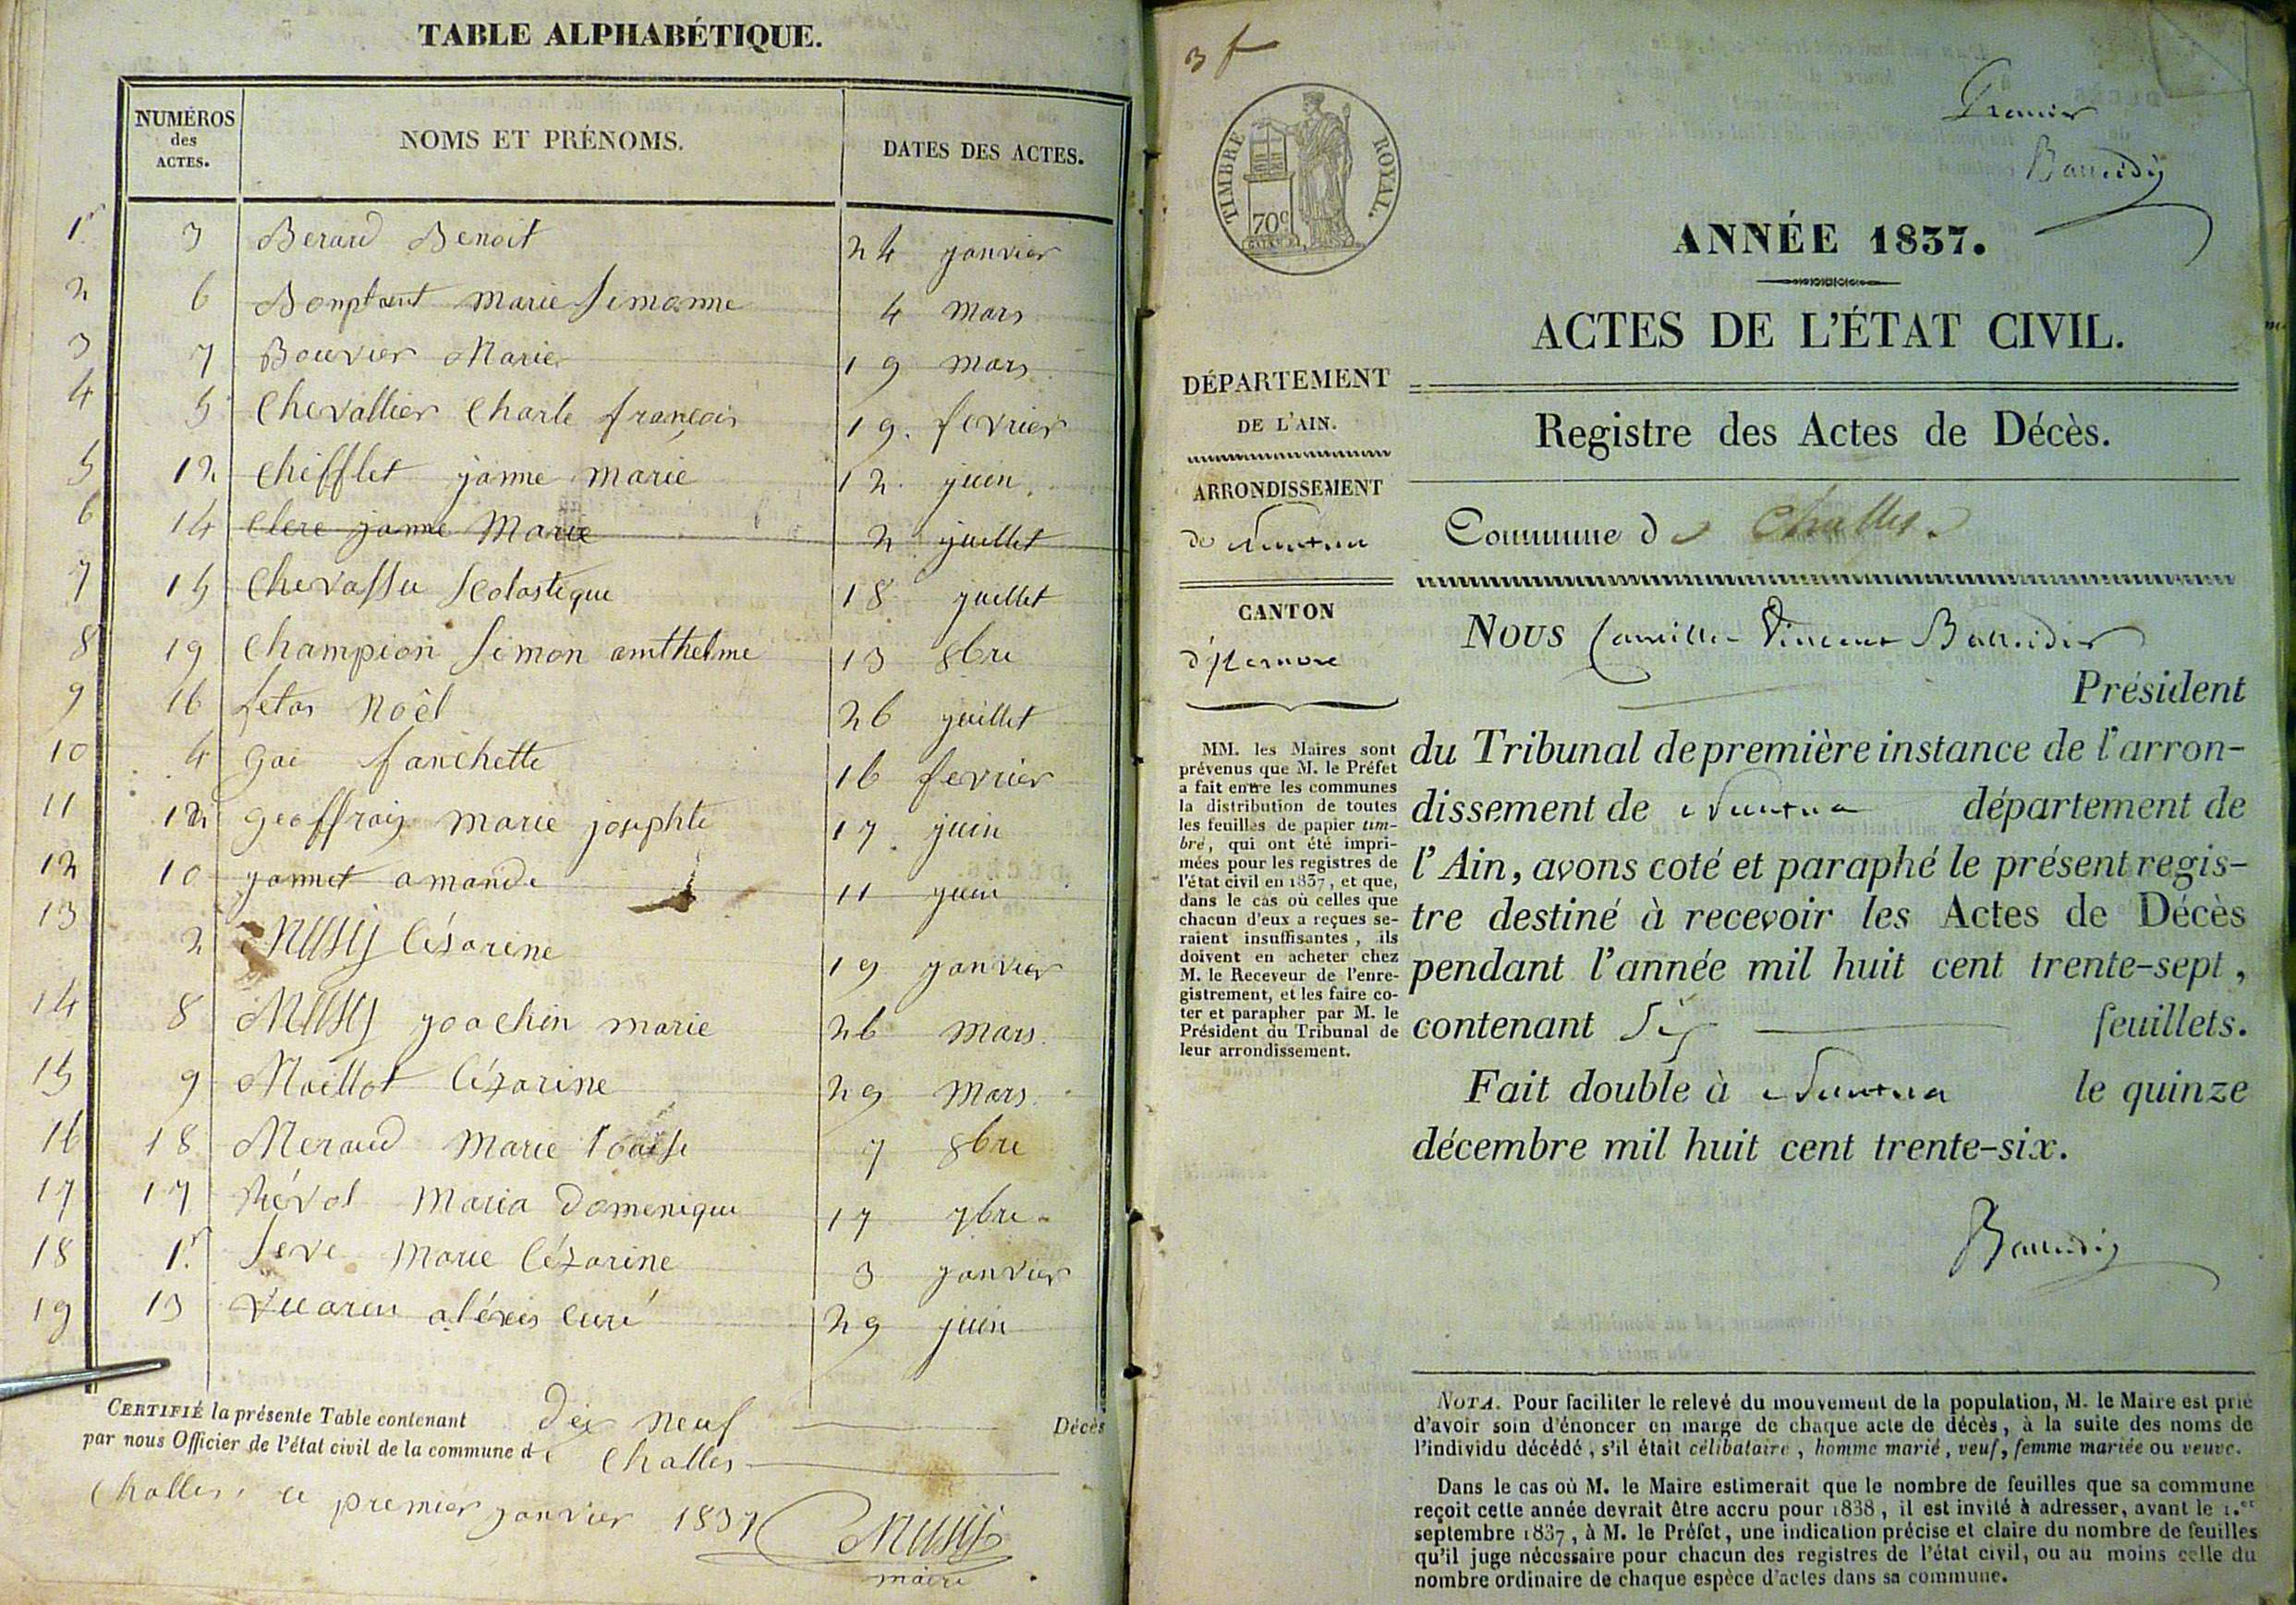 TABLE ALPHABÉTIQUE.
NUMÉROS des ACTES.
NOMS ET PRÉNOMS.
DATES DES ACTES.
1.r 3 Berard Benoit 24 janvier
2 6 Bonplant marie Simonne 4 mars
3 7 Bouvier Marie 19 mars
4 5 Chevallier Charle françois 19. fevrier
5 12 Chifflet janne marie 12. juin
6 14 Clere janne Marie 2 juillet
7 15 Chevassu Scolastique 18 juillet
8 19 Champion Simon amthelme 13 8bre
9 16 Noèl 26 juillet
10 4 Goi fanchette 16 fevrier
11 Geoffray marie josephte 17. juin
12 10 jannet amande 11 juin
13 2 Mussy Césarine 19 janvier
14 8 Mussy joachin marie 26 Mars
15 9 Maillot Cézarine 29 Mars
16 18 Meraud Marie louise 7 8bre
17 17 Révol Maria Domenique 17 7bre
18 1.r Seve Marie Cézarine 3 janvier
19 13 Vuarin aléxis Curé 29 juin
CERTIFIÉ la présente Table contenant dix neuf Décès
par nous Officier de l'état civil de la commune de Challes
Challes, ce premier janvier 1837
Mussy
maire
3 f
Premier
TIMBRE ROYAL.
70c
ANNÉE 1837.
ACTES DE L'ÉTAT CIVIL.
Registre des Actes de Décès.
Commune de Challes.
DÉPARTEMENT
DE L'AIN.
ARRONDISSEMENT
de Nantua
CANTON
d'Izernore
MM. les Maires sont
prévenus que M. le Préfet
a fait entre les communes
la distribution de toutes
les feuilles de papier tim-
bré, qui ont été impri-
mées pour les registres de
l'état civil en 1837, et que,
dans le cas où celles que
chacun d'eux a reçues se-
raient insuffisantes, ils
doivent en acheter chez
M. le Receveur de l'enre-
gistrement, et les faire co-
ter et parapher par M. le
Président du Tribunal de
leur arrondissement.
Nous Camille Vincent
Président
du Tribunal de première instance de l'arron-
dissement de Nantua département de
l'Ain, avons coté et paraphé le présent regis-
tre destiné à recevoir les Actes de Décès
pendant l'année mil huit cent trente-sept,
contenant Six feuillets.
Fait double à Nantua le quinze
décembre mil huit cent trente-six.
NOTA. Pour faciliter le relevé du mouvement de la population, M. le Maire est prié
d'avoir soin d'énoncer en marge de chaque acte de décès, à la suite des noms de
l'individu décédé, s'il était célibataire, homme marié, veuf, femme mariée ou veuve.
Dans le cas où M. le Maire estimerait que le nombre de feuilles que sa commune
reçoit cette année devrait être accru pour 1838, il est invité à adresser, avant le 1.er
septembre 1837, à M. le Préfet, une indication précise et claire du nombre de feuilles
qu'il juge nécessaire pour chacun des registres de l'état civil, ou au moins celle du
nombre ordinaire de chaque espèce d'actes dans sa commune.